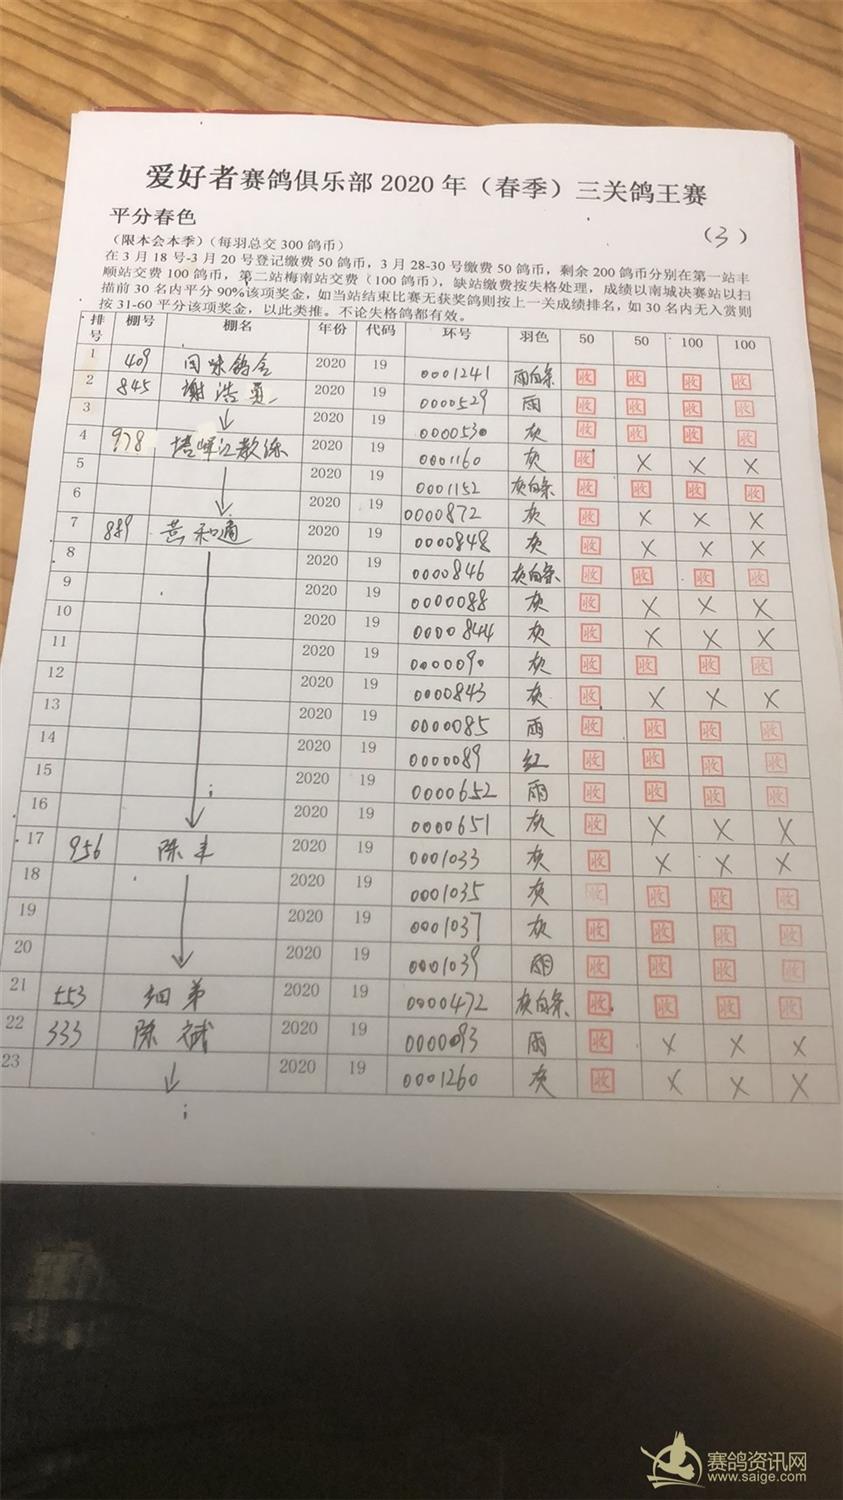 爱好者赛鸽俱乐部 2020 年（春季）三关鸽王赛
平分春色 （3）
（限本会本季）（每羽总交 300 鸽币）
在 3 月 18 号-3 月 20 号登记缴费 50 鸽币，3 月 28-30 号缴费 50 鸽币，剩余 200 鸽币分别在第一站丰
顺站交费 100 鸽币，第二站梅南站交费（100 鸽币），缺站缴费按失格处理，成绩以南城决赛站以扫
描前 30 名内平分 90%该项奖金，如当站结束比赛无获奖鸽则按上一关成绩排名，如 30 名内无入赏则
按 31-60 平分该项奖金，以此类推。不论失格鸽都有效。
排号 棚号 棚名 年份 代码 环号 羽色 50 50 100 100
1 409 回味鸽舍 2020 19 0001241 雨白条 收 收 收 收
2 845 谢浩勇 2020 19 0000529 雨 收 收 收 收
3 2020 19 0000530 灰 收 收 收 收
4 978 2020 19 0001160 灰 收 X X X
5 2020 19 0001152 灰白条 收 收 收 收
6 2020 19 0000872 灰 收 X X X
7 889 黄和通 2020 19 0000848 灰 收 X X X
8 2020 19 0000846 灰白条 收 收 收 收
9 2020 19 0000088 灰 收 X X X
10 2020 19 0000844 灰 收 X X X
11 2020 19 0000090 灰 收 收 收 收
12 2020 19 0000843 灰 收 X X X
13 2020 19 0000085 雨 收 收 收 收
14 2020 19 0000089 红 收 收 收 收
15 2020 19 0000652 雨 收 收 收 收
16 2020 19 0000651 灰 收 X X X
17 956 陈丰 2020 19 0001033 灰 收 X X X
18 2020 19 0001035 灰 收 收 收 收
19 2020 19 0001037 灰 收 收 收 收
20 2020 19 0001039 雨 收 收 收 收
21 553 细弟 2020 19 0000472 灰白条 收 收 收 收
22 333 陈斌 2020 19 0000093 雨 收 X X X
23 2020 19 0001260 灰 收 X X X
赛鸽资讯网
www.saige.com